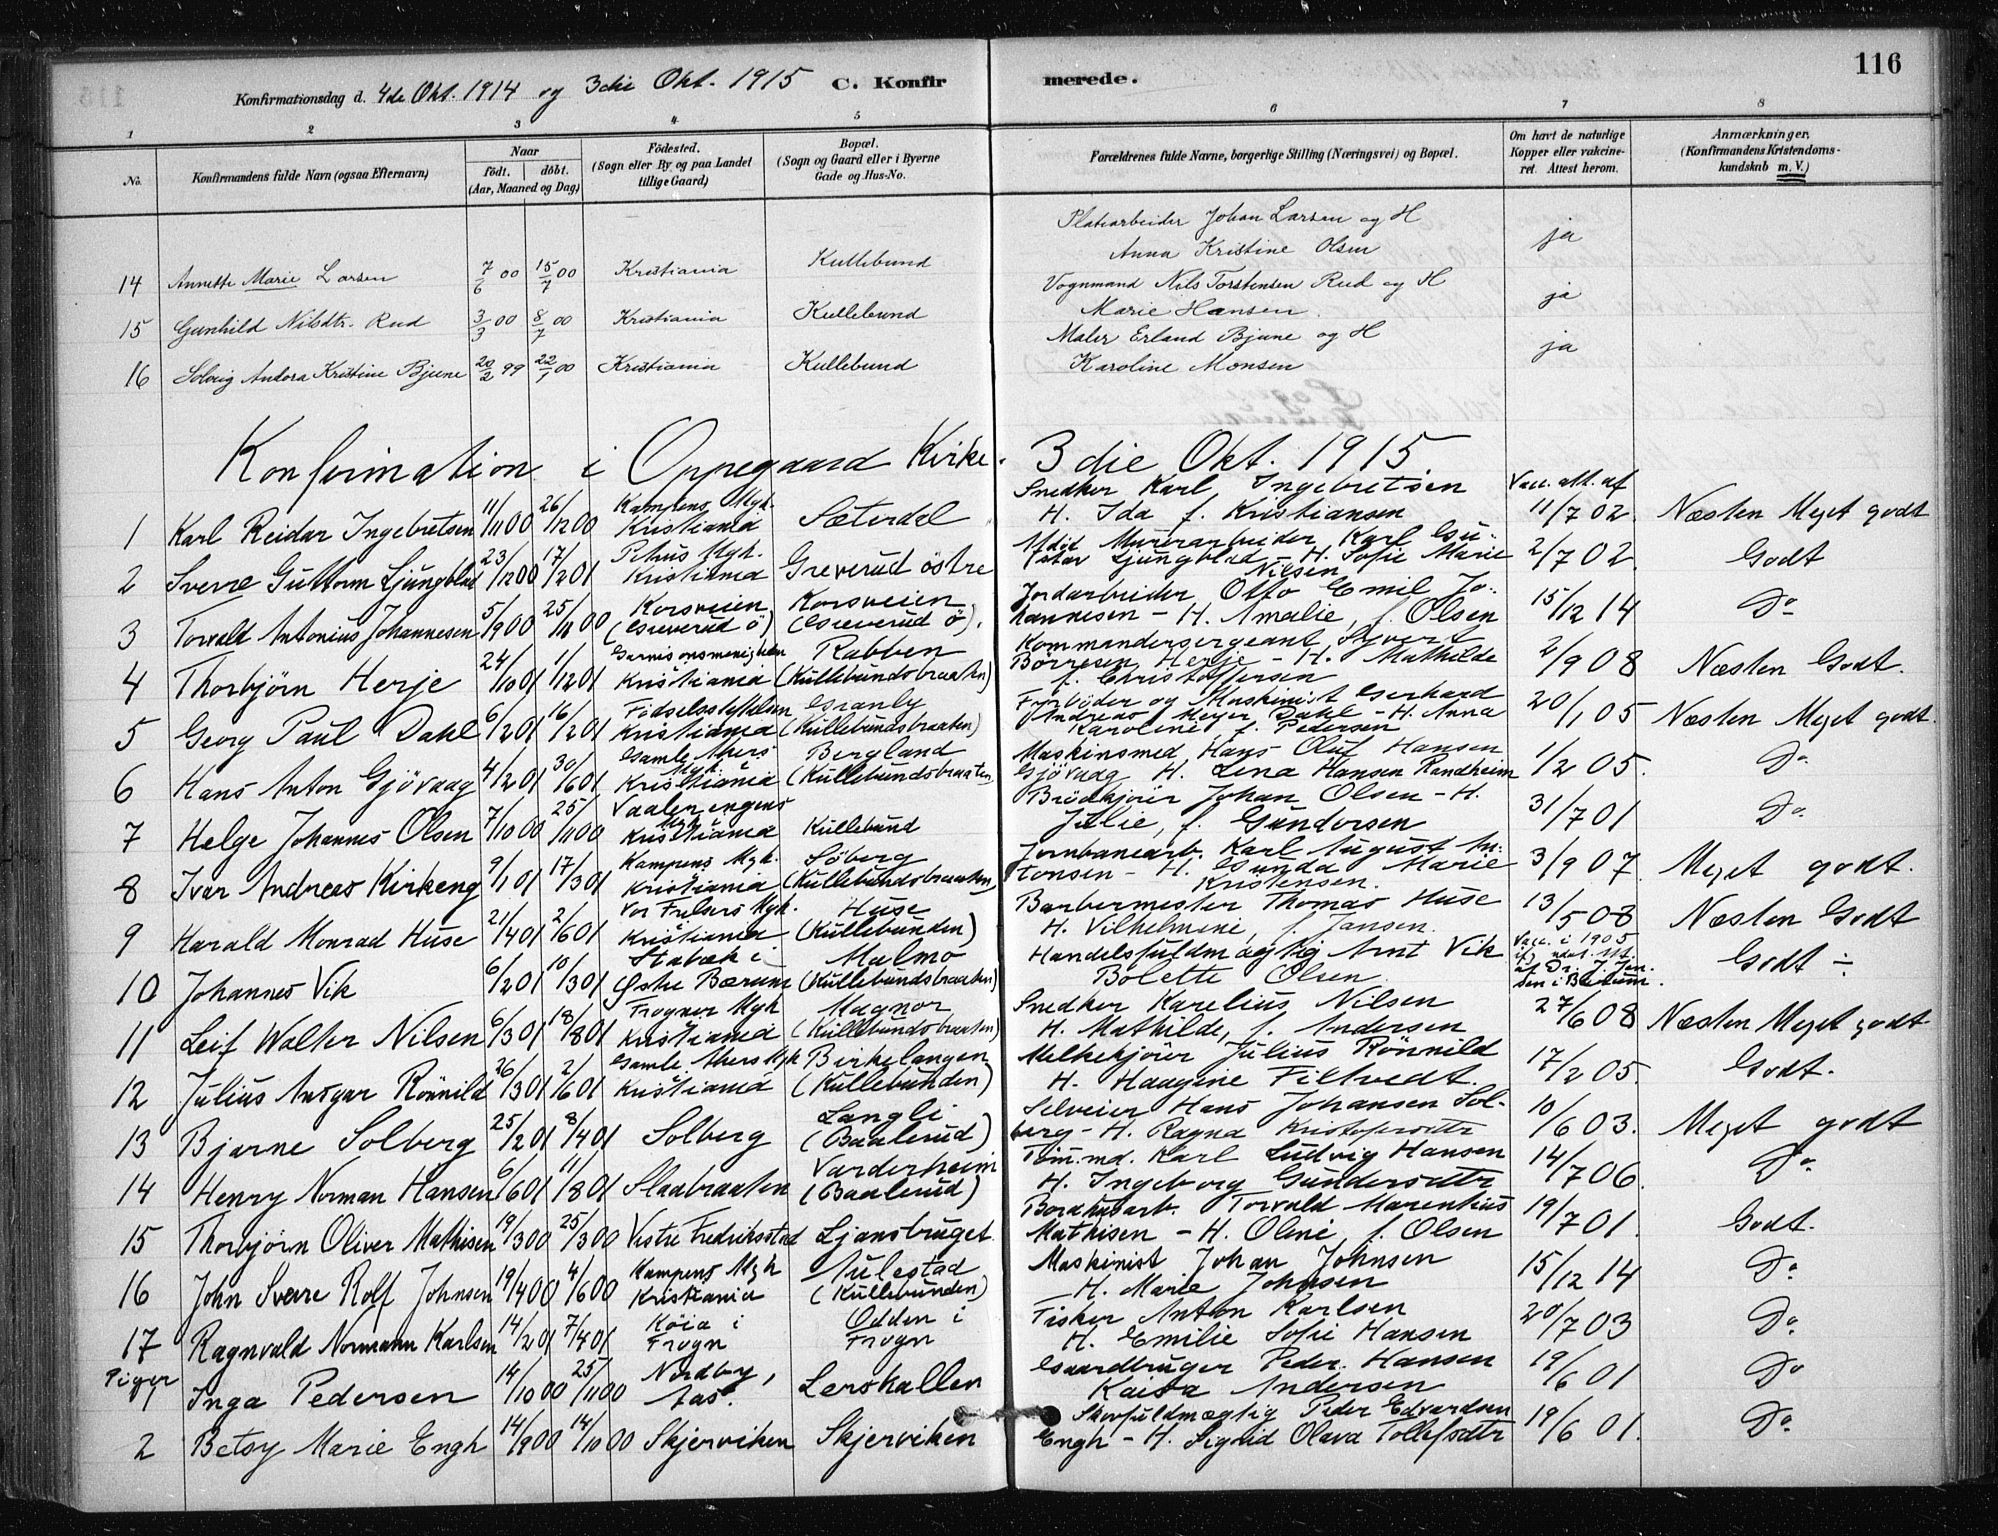 116
Konfirmationsdag d. 4de Okt. 1914 og 3die Okt. 1915 C. Konfirmerede.
1 2 3 4 5 6 7 8
No. Konfirmandens fulde Navn (ogsaa Efternavn) Naar født. døbt. (Aar, Maaned og Dag) Fødested. (Sogn eller By og paa Landet tillige Gaard) Bopæl. (Sogn og Gaard eller i Byerne Gade og Hus-No. Forældrenes fulde Navne, borgerlige Stilling (Næringsvei) og Bopæl. Om havt de naturlige Kopper eller vakcineret. Attest herom. Anmærkninger. (Konfirmandens Kristendomskundskab m. V.)
14 Annette Marie Larsen 7/6 00 15/7 00 Kristiania Kullebund Platearbeider Johan Larsen og H Anna Kristine Olsen ja
15 Gunhild Nilsdtr. Rud 3/3 00 8/7 00 Kristiania Kullebund Vognmand Nils Torstensen Rud og H Marie Hansen. ja
16 Solveig Andora Kristine Bjune 20/2 99 22/7 00 Kristiania Kullebund Maler Erland Bjune og H Karoline Monsen ja
Konfirmation i Oppegaard Kirke. 3die Okt. 1915.
1 Karl Reidar Ingebretsen 11/11 00 26/12 00 Kampens Mgh. Kristiania Sæterdal Snedker Karl Ingebretsen H. Ida f. Kristiansen Vacc. att. af 11/7 02. Næsten Meget godt
2 Sverre Guttorm Ljungblad 23/12 00 17/2 01 Petrus Mgh. Kristiania Greverud östre Murerarbeider Karl Gustav Ljungblad - H. Sofie Marie Nilsen 2/7 02. Godt
3 Torvald Antonius Johannesen 5/9 00 25/11 00 Korsveien (Greverud ö) Korsveien (Greverud ö). Jordarbeider Otto Emil Johannesen - H. Amalie, f. Olsen 15/12 14 Do
4 Thorbjörn Herje 24/10 01 1/12 01 Garnisonsmenigheden Kristiania Rabben (Kullebundsbraaten) Kommandersergeant Syvert Börresen Herje - H. Mathilde f. Christoffersen 2/9 08 Næsten Godt.
5 Georg Paul Dahl 6/2 01 16/2 01 Födselsstiftelsen Kristiania Granly (Kullebundsbraaten) Fyrböder og Maskinist Gerhard Andreas Meyer Dahl - H. Anna Karoline f. Pedersen 20/1 05 Næsten Meget godt.
6 Hans Anton Gjövaag 4/2 01 30/6 01 Gamle Akers Mgh. i Kristiania Bergland (Kullebundsbraaten) Maskinsmed Hans Oluf Hansen Gjövaag H. Lina Hansen Randheim 1/2 05. Do
7 Helge Johannes Olsen 7/10 00 25/11 00 Vaalerengens Mgh. Kristiania Kullebund Brödkjörer Johan Olsen - H. Julie, f. Gundersen 31/7 01 Do
8 Ivar Andreas Kirkeng 9/1 01 17/3 01 Kampens Mgh. Kristiania Söberg (Kullebundsbraaten) Jernbanearb. Karl August Antonsen - H. Gunda Marie Kristensen. 3/9 07. Meget godt.
9 Harald Monrad Huse 21/4 01 2/6 01 Vor Frelsers Mgh. Kristiania Huse (Kullebunden) Barbermester Thomas Huse H. Vilhelmine, f. Jansen. 13/5 08 Næsten Godt
10 Johannes Vik 6/2 01 10/3 01 Stabæk i Østre Bærum Malmo (Kullebundsbraaten) Handelsfuldmægtig Arnt Vik Bolette Olsen Vacc. i 1905 af Dr. J. Jensen i Bærum. Godt ÷
11 Leif Walter Nilsen 6/3 01 18/8 01 Frogner Mgh Kristiania Magnor (Kullebundsbraaten) Snedker Karelius Nilsen H. Mathilde, f. Andersen 27/6 08 Næsten Meget godt
12 Julius Ansgar Rönnild 26/3 01 2/6 01 Gamle Akers Mgh Kristiania Birkelangen (Kullebunden) Melkekjörer Julius Rönnild H. Haagine Filtvedt. 17/2 05. Godt.
13 Bjarne Solberg 25/2 01 8/4 01 Solberg Langli (Baalerud) Selveier Hans Johansen Solberg - H. Ragna Kristofersdtr 10/6 03. Meget godt
14 Henry Norman Hansen 6/6 01 11/8 01 Slaabraaten Varderheim (Baalerud) Töm.md. Karl Ludvig Hansen H. Ingeborg Gundersdtr 14/7 06. Do
15 Thorbjörn Oliver Mathisen 19/3 00 25/3 00 Vestre Fredriksstad Ljansbruget. Bordhusarb. Torvald Marentius Mathisen - H. Oline, f. Olsen 19/7 01. Godt.
16 John Sverre Rolf Johnsen 19/4 00 4/6 00 Kampens Mgh Kristiania Aulestad (Kullebunden) Maskinist Johan Johnsen H. Marie Johnsen 15/12 14 Do
17 Ragnvald Normann Karlsen 14/2 01 7/4 01 Köia i Frogn Odden i Frogn Fisker Anton Karlsen H. Emilie Sofie Hansen 20/7 03 Do
Piger
1 Inga Pedersen 14/10 00 25/11 00 Nordby, Aas. Lerskallen Gaardbruger Peder Hansen Kaisa Andersen 19/6 01 Do
2 Betsy Marie Engh 14/9 00 14/10 00 Skjerviken Skjerviken Skovfuldmægtig Peder Edvardsen Engh - H. Sigrid Olava Tollefsdtr 19/6 01. Do